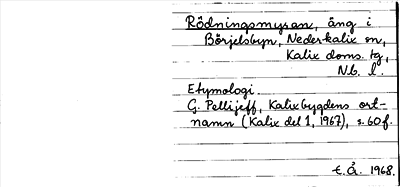 Rödningsmyran, äng i
Börjelsbyn, Nederkalix sn,
Kalix doms. tg,
Nb. l.
Etymologi.
G. Pellijeff, Kalixbygdens ort-
namn (Kalix del 1, 1967), s. 60 f.
t.Å. 1968.